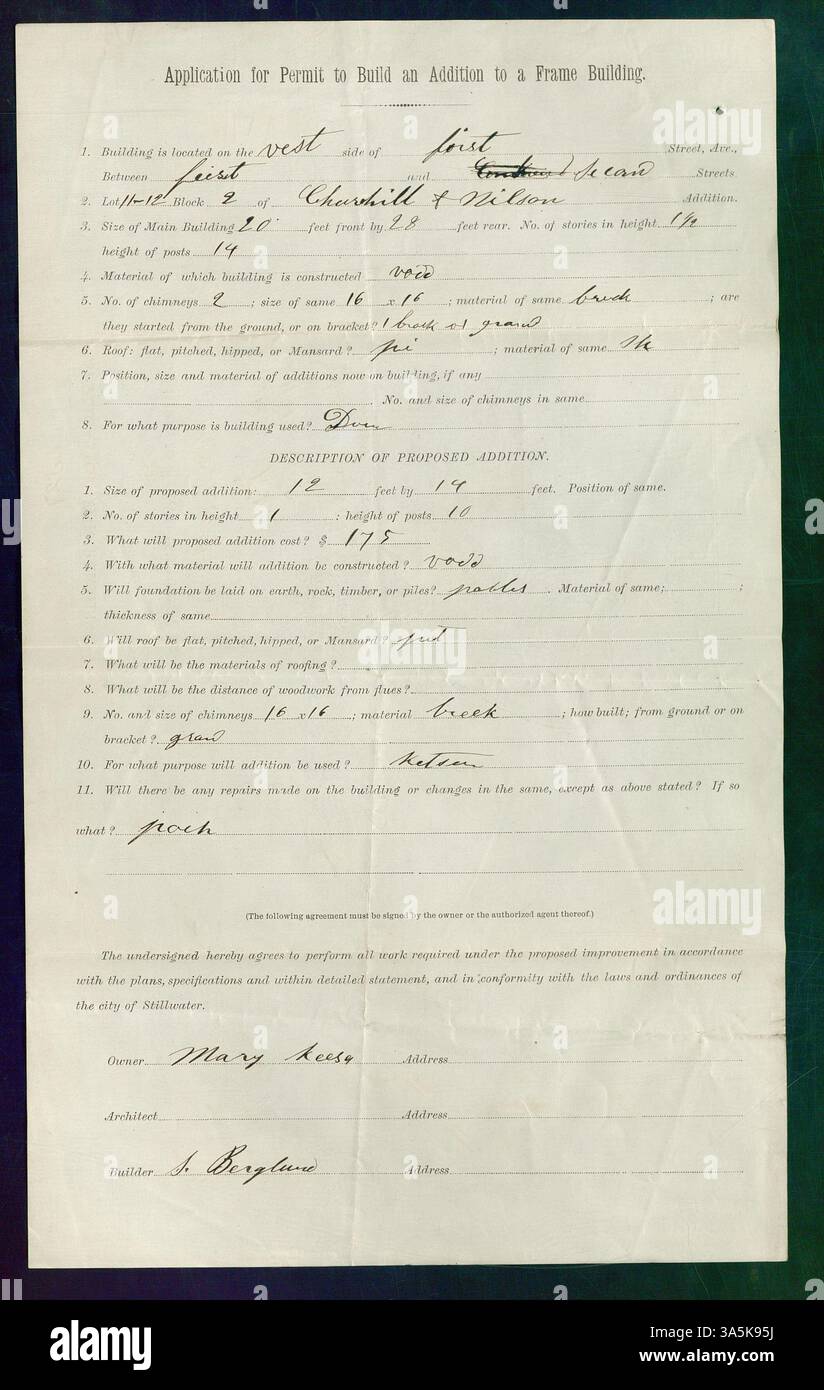 Application for Permit to Build an Addition to a Frame Building.
1. Building is located on the vest side of first Street, Ave.,
Between feirst and Secand Streets
2. Lot 11-12 Block 2 of Churhill & Nilson Addition.
3. Size of Main Building 20 feet front by 28 feet rear. No. of stories in height 1 1/2
height of posts 14
4. Material of which building is constructed vood
5. No. of chimneys 2 ; size of same 16 x 16 ; material of same breck ; are
they started from the ground, or on bracket? 1
6. Roof: flat, pitched, hipped, or Mansard? pi ; material of same
7. Position, size and material of additions now on building, if any
No. and size of chimneys in same
8. For what purpose is building used?
DESCRIPTION OF PROPOSED ADDITION.
1. Size of proposed addition: 12 feet by 14 feet. Position of same.
2. No. of stories in height 1 : height of posts 10
3. What will proposed addition cost? $ 175
4. With what material will addition be constructed? vood
5. Will foundation be laid on earth, rock, timber, or piles? Material of same; ;
thickness of same
6. Will roof be flat, pitched, hipped, or Mansard?
7. What will be the materials of roofing?
8. What will be the distance of woodwork from flues?
9. No. and size of chimneys 16 x 16 ; material breek ; how built; from ground or on
bracket? graw
10. For what purpose will addition be used? Ketsen
11. Will there be any repairs made on the building or changes in the same, except as above stated? If so
what? poch
(The following agreement must be signed by the owner or the authorized agent thereof.)
The undersigned hereby agrees to perform all work required under the proposed improvement in accordance
with the plans, specifications and within detailed statement, and in conformity with the laws and ordinances of
the city of Stillwater.
Owner Mary Address
Architect Address
Builder S. Berglund Address
alamy
Image ID: 3A5K95J
www.alamy.com